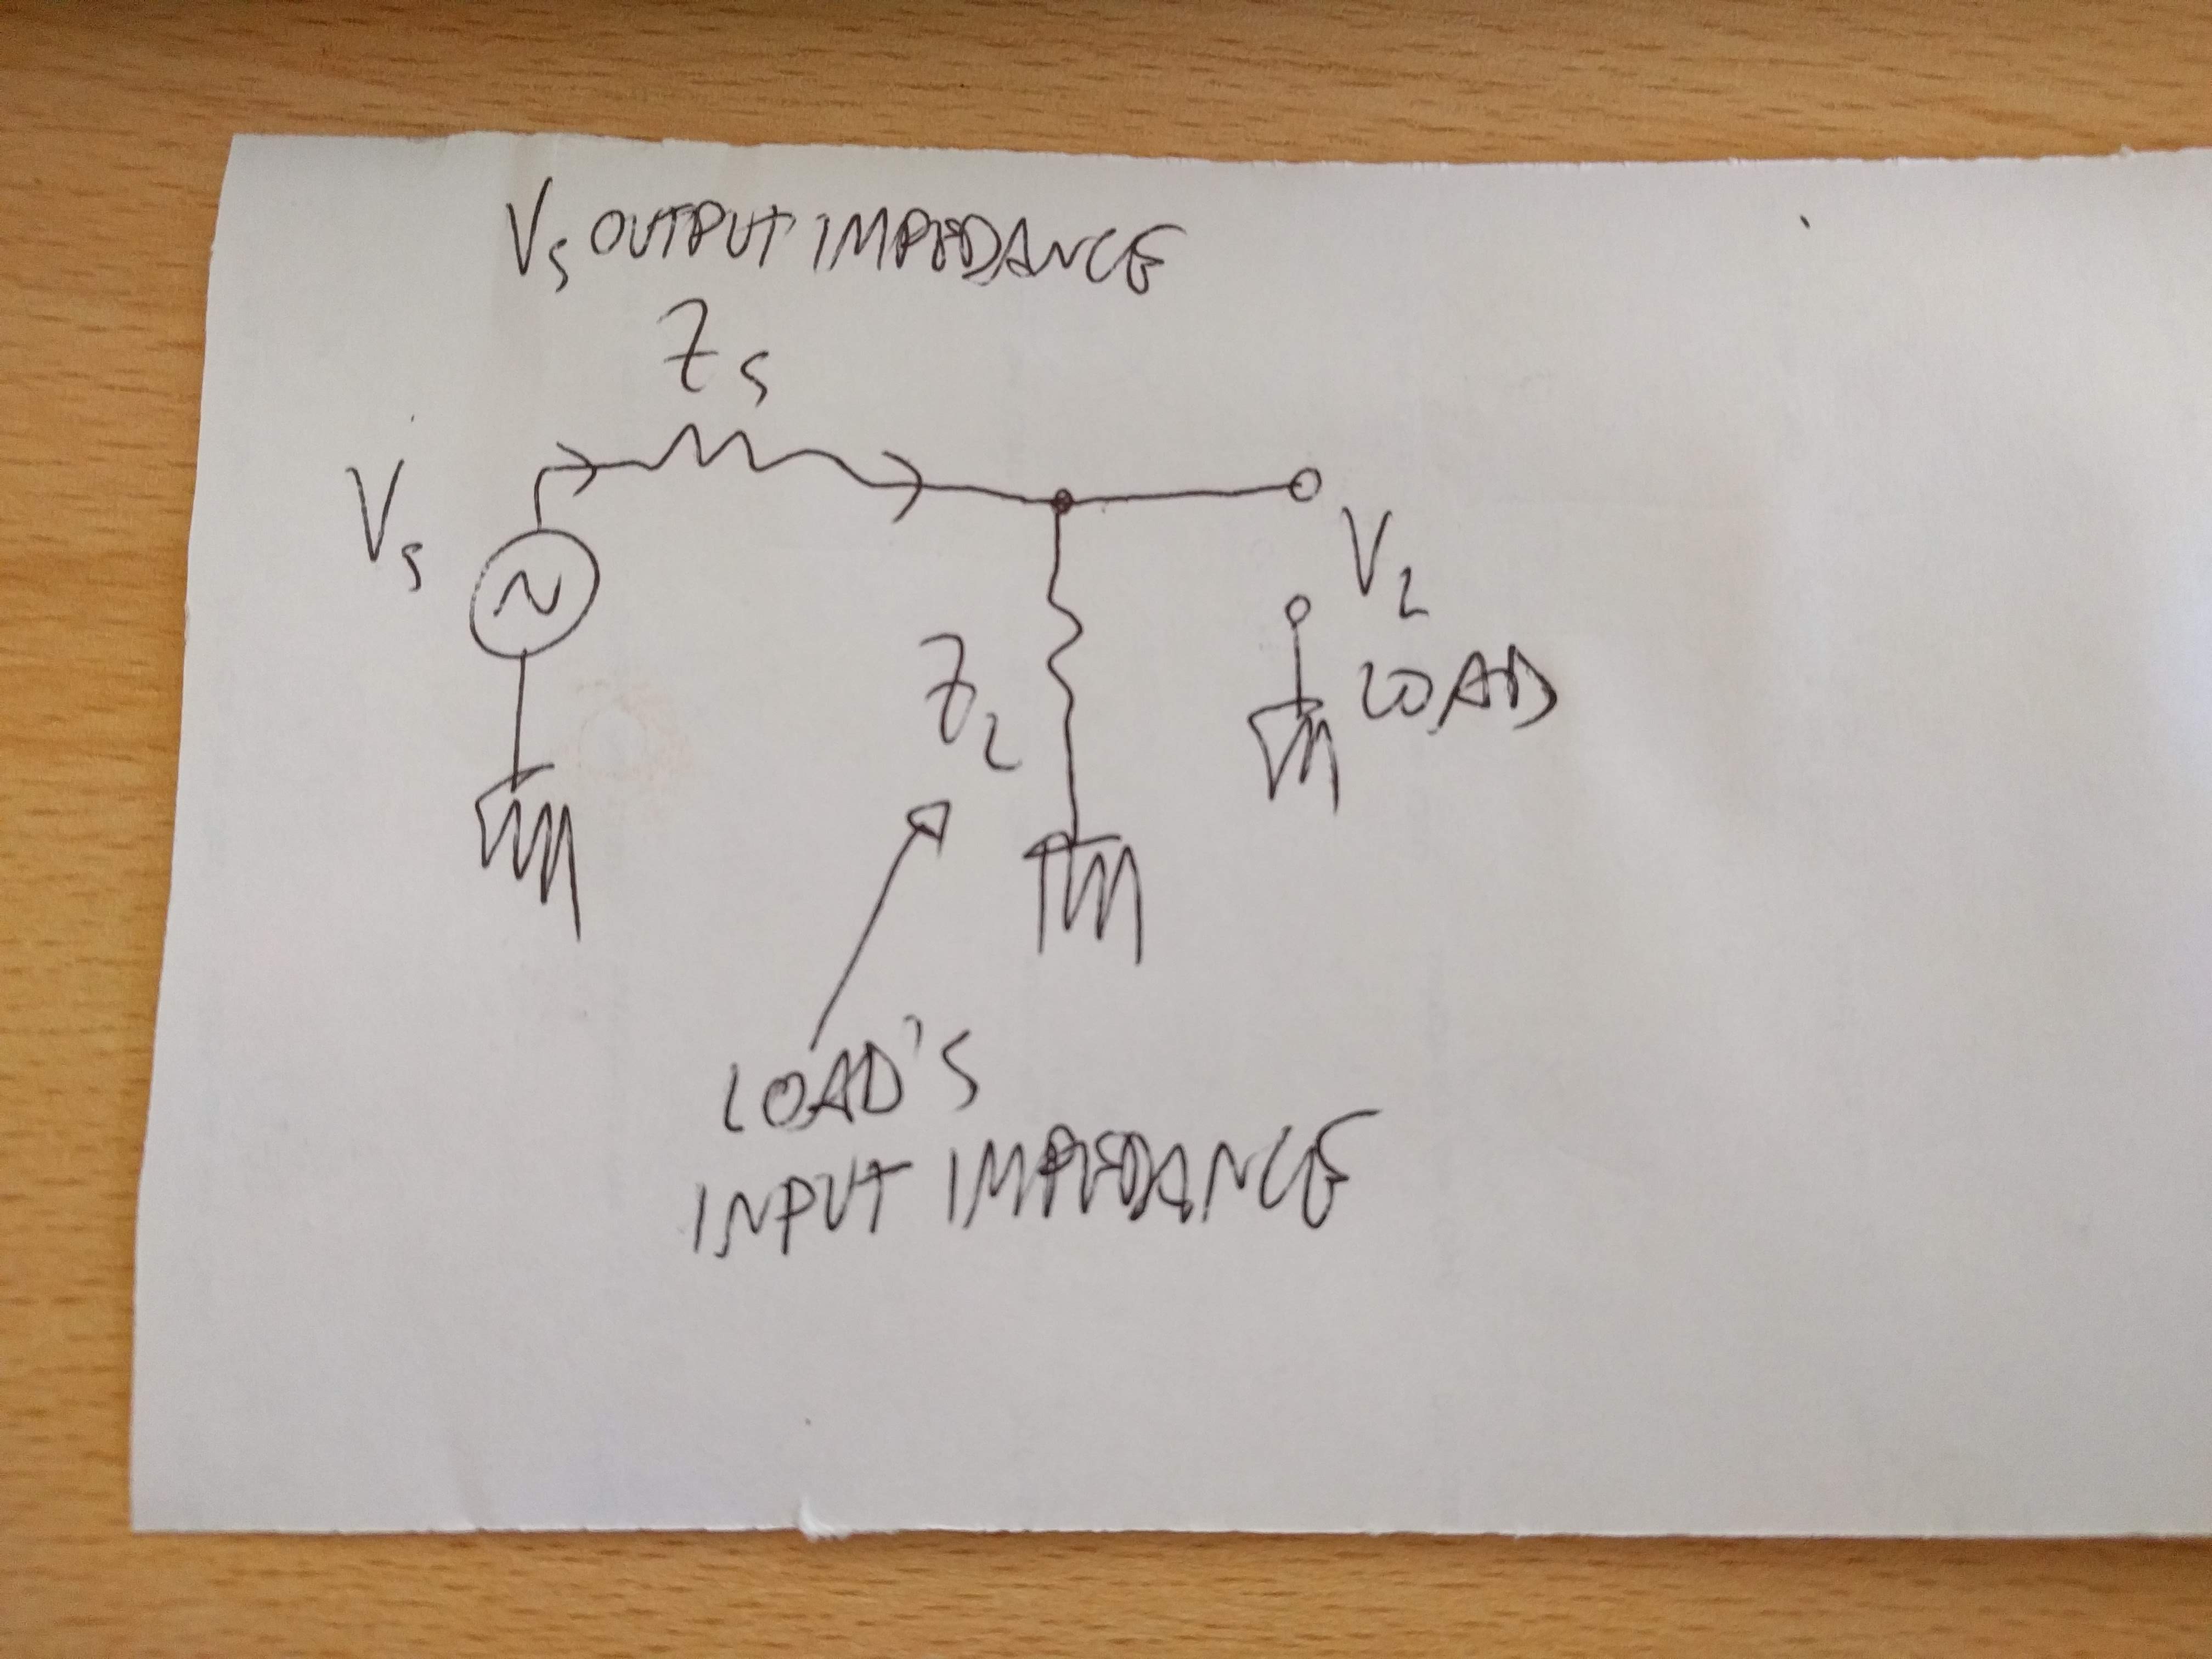 Vs OUTPUT IMPEDANCE
Zs
Vs
VL
ZL
LOAD
LOAD'S
INPUT IMPEDANCE